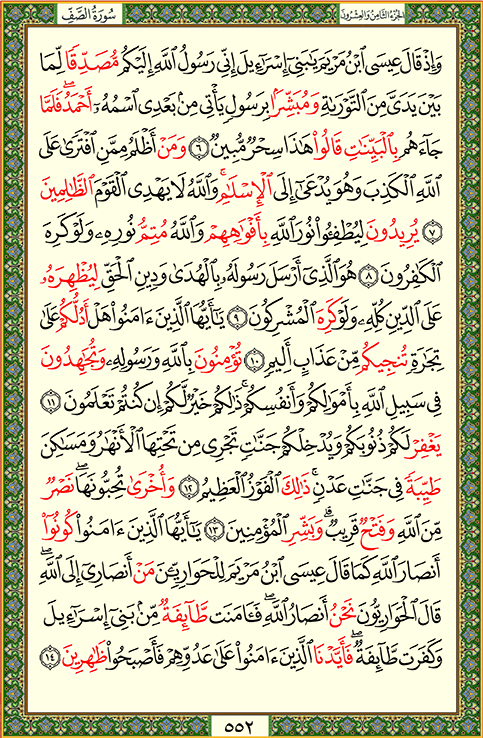 الجزء الثامن والعشرون
سورة الصف
وَإِذْ قَالَ عِيسَى ابْنُ مَرْيَمَ يَٰبَنِىٓ إِسْرَٰٓءِيلَ إِنِّى رَسُولُ ٱللَّهِ إِلَيْكُم مُّصَدِّقًا لِّمَا
بَيْنَ يَدَىَّ مِنَ ٱلتَّوْرَىٰةِ وَمُبَشِّرًۢا بِرَسُولٍ يَأْتِى مِنۢ بَعْدِى ٱسْمُهُۥٓ أَحْمَدُ ۖ فَلَمَّا
جَآءَهُم بِٱلْبَيِّنَٰتِ قَالُوا۟ هَٰذَا سِحْرٌ مُّبِينٌ ٦ وَمَنْ أَظْلَمُ مِمَّنِ ٱفْتَرَىٰ عَلَى
ٱللَّهِ ٱلْكَذِبَ وَهُوَ يُدْعَىٰٓ إِلَى ٱلْإِسْلَٰمِ ۚ وَٱللَّهُ لَا يَهْدِى ٱلْقَوْمَ ٱلظَّٰلِمِينَ
٧ يُرِيدُونَ لِيُطْفِـُٔوا۟ نُورَ ٱللَّهِ بِأَفْوَٰهِهِمْ وَٱللَّهُ مُتِمُّ نُورِهِۦ وَلَوْ كَرِهَ
ٱلْكَٰفِرُونَ ٨ هُوَ ٱلَّذِىٓ أَرْسَلَ رَسُولَهُۥ بِٱلْهُدَىٰ وَدِينِ ٱلْحَقِّ لِيُظْهِرَهُۥ
عَلَى ٱلدِّينِ كُلِّهِۦ وَلَوْ كَرِهَ ٱلْمُشْرِكُونَ ٩ يَٰٓأَيُّهَا ٱلَّذِينَ ءَامَنُوا۟ هَلْ أَدُلُّكُمْ عَلَىٰ
تِجَٰرَةٍ تُنجِيكُم مِّنْ عَذَابٍ أَلِيمٍ ١٠ تُؤْمِنُونَ بِٱللَّهِ وَرَسُولِهِۦ وَتُجَٰهِدُونَ
فِى سَبِيلِ ٱللَّهِ بِأَمْوَٰلِكُمْ وَأَنفُسِكُمْ ۚ ذَٰلِكُمْ خَيْرٌ لَّكُمْ إِن كُنتُمْ تَعْلَمُونَ ١١
يَغْفِرْ لَكُمْ ذُنُوبَكُمْ وَيُدْخِلْكُمْ جَنَّٰتٍ تَجْرِى مِن تَحْتِهَا ٱلْأَنْهَٰرُ وَمَسَٰكِنَ
طَيِّبَةً فِى جَنَّٰتِ عَدْنٍ ۚ ذَٰلِكَ ٱلْفَوْزُ ٱلْعَظِيمُ ١٢ وَأُخْرَىٰ تُحِبُّونَهَا ۖ نَصْرٌ
مِّنَ ٱللَّهِ وَفَتْحٌ قَرِيبٌ ۗ وَبَشِّرِ ٱلْمُؤْمِنِينَ ١٣ يَٰٓأَيُّهَا ٱلَّذِينَ ءَامَنُوا۟ كُونُوٓا۟
أَنصَارَ ٱللَّهِ كَمَا قَالَ عِيسَى ٱبْنُ مَرْيَمَ لِلْحَوَارِيِّـۧنَ مَنْ أَنصَارِىٓ إِلَى ٱللَّهِ ۖ
قَالَ ٱلْحَوَارِيُّونَ نَحْنُ أَنصَارُ ٱللَّهِ ۖ فَـَٔامَنَت طَّآئِفَةٌ مِّنۢ بَنِىٓ إِسْرَٰٓءِيلَ
وَكَفَرَت طَّآئِفَةٌ ۖ فَأَيَّدْنَا ٱلَّذِينَ ءَامَنُوا۟ عَلَىٰ عَدُوِّهِمْ فَأَصْبَحُوا۟ ظَٰهِرِينَ ١٤
٥٥٢